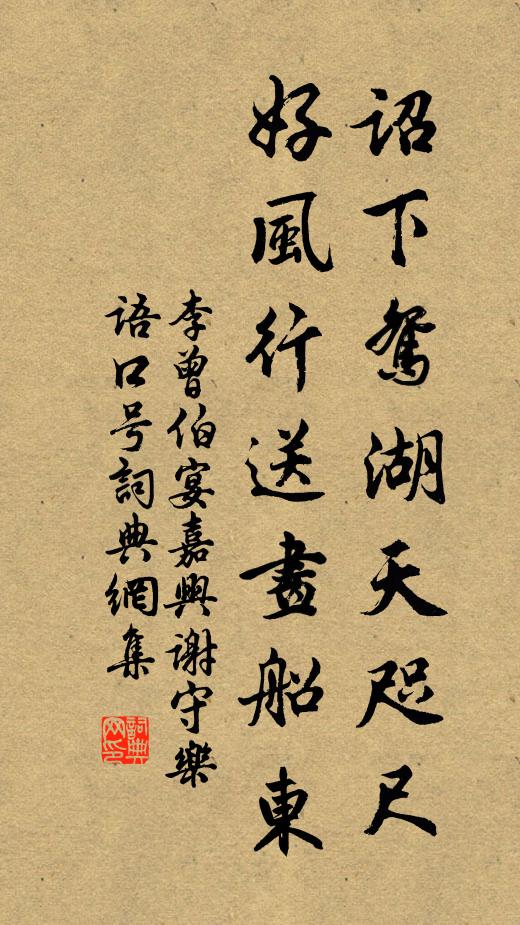 詔下鴛湖天咫尺
好風行送畫船東
李曾伯宴嘉興謝守樂
语口号詞典網集
詞典網印